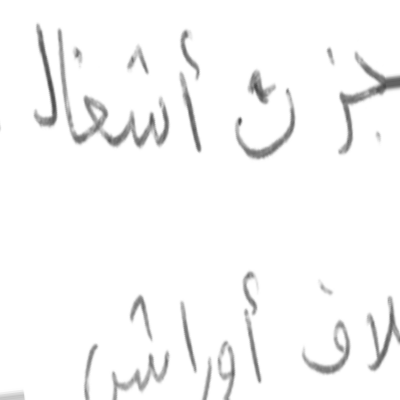 جزت أشغال
لاف أوراش